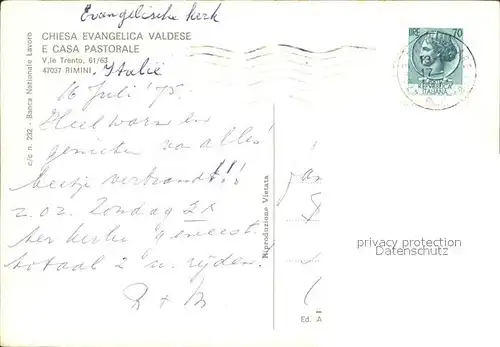 Evangelische kerk
CHIESA EVANGELICA VALDESE
E CASA PASTORALE
V.le Trento, 61/63
47037 RIMINI Italië
c/c n. 232 - Banca Nazionale Lavoro
16 Juli '75
Heel warm en
genieten van alles!
beetje verbrandt!!
z.oz. Zondag 2x
ter kerke geweest.
totaal 2 u. rijden.
R + M
Riproduzione Vietata
Ed. A
LIRE 70
ITALIANA
privacy protection
Datenschutz